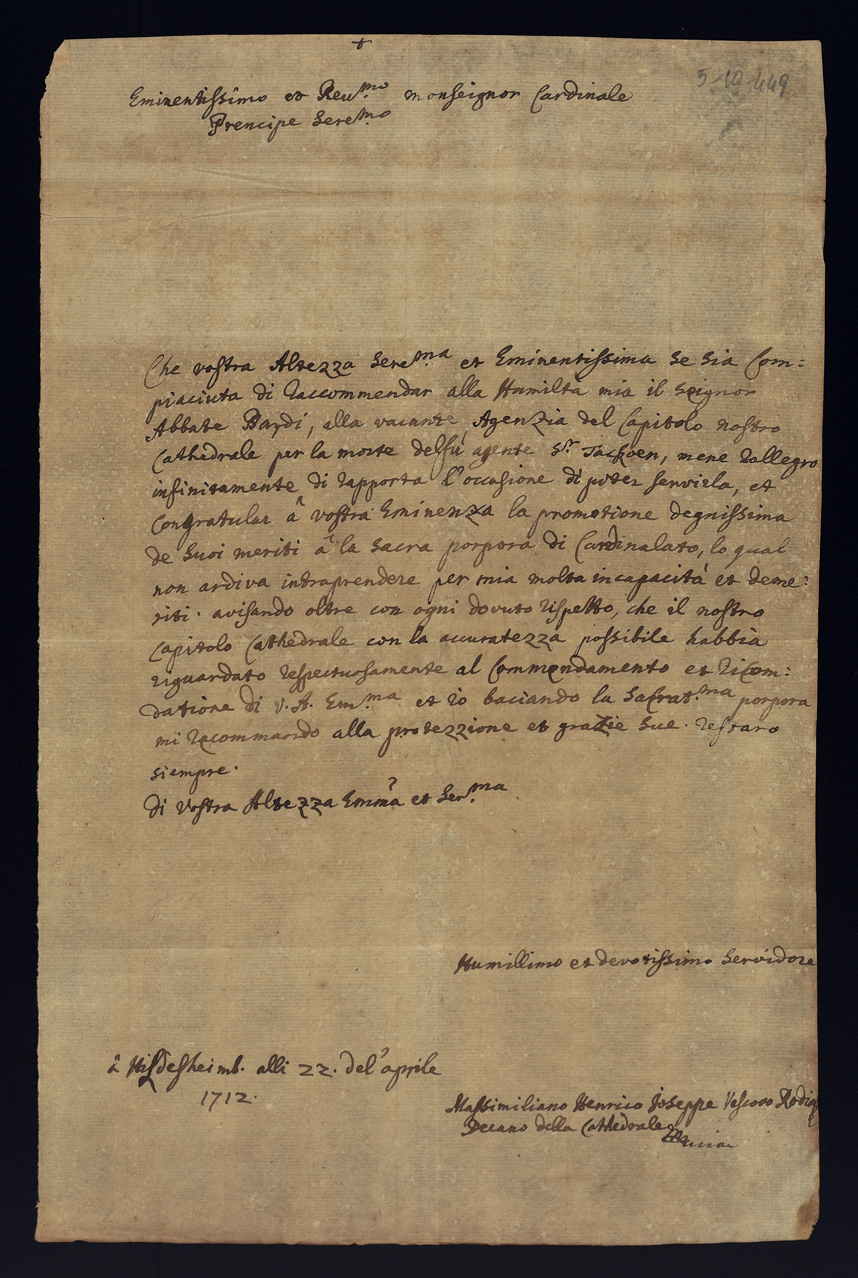 +
5-10-449
Eminentissimo et Reu.mo monseignor Cardinale
Prencipe Sere.mo
Che vostra Altezza Sere.ma et Eminentissima se sia Com:
piaciuta di raccommendar alla Humiltà mia il Seignor
Abbate Bardi, alla vacante Agenzia del Capitolo nostro
Cathedrale per la morte del fu agente S.r, mene rallegro
infinitamente di rapporto l'occasione di poter servirla, et
Congratular â vostra Eminenza la promotione degnissima
de Suoi meriti â la Sacra porpora di Cardinalato, lo qual
non ardiva intraprendere per mia molta incapacità et deme:
riti. avisando oltre con ogni dovuto rispetto, che il nostro
Capitolo Cathedrale con la accuratezza possibile habbia
riguardato respectuosamente al Commendamento et ricom:
datione di V. A. Em.ma et io baciando la Sacrat.ma porpora
mi racommando alla protezzione et grazie Sue. restaro
siempre.
di Vostra Altezza Emma et Ser.ma
Humillimo et devotissimo Servidore
â Hildesheimb. alli 22. del' aprile
1712.
Massimiliano Henrico Joseppe Vescovo
Decano della Cathedrale